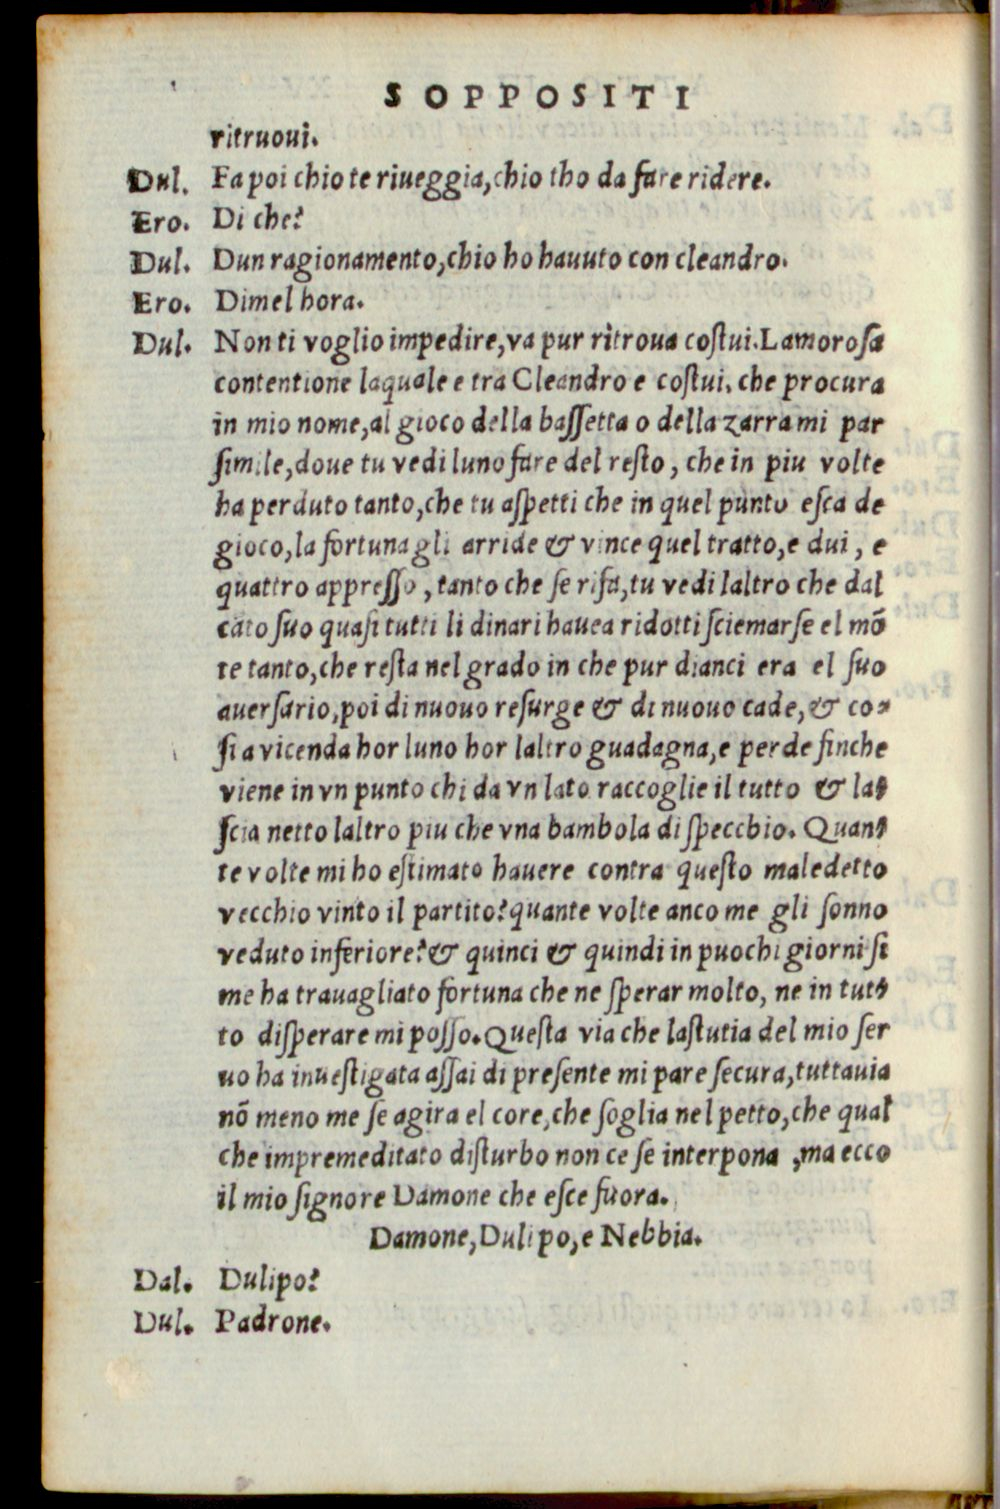 SOPPOSITI
ritruoui.
Dul. Fa poi chio te riueggia,chio tho da fare ridere.
Ero. Di che?
Dul. Dun ragionamento,chio ho hauuto con cleandro.
Ero. Dimel hora.
Dul. Non ti voglio impedire,va pur ritroua costui.Lamorosa
contentione laquale e tra Cleandro e costui, che procura
in mio nome,al gioco della bassetta o della zarra mi par
simile,doue tu vedi luno fare del resto, che in piu volte
ha perduto tanto,che tu aspetti che in quel punto esca de
gioco,la fortuna gli arride & vince quel tratto,e dui, e
quattro appresso, tanto che se rifa,tu vedi laltro che dal
cato suo quasi tutti li dinari hauea ridotti sciemarse el mõ
te tanto,che resta nel grado in che pur dianci era el suo
auersario,poi di nuouo resurge & di nuouo cade,& co-
si a vicenda hor luno hor laltro guadagna,e perde finche
viene in vn punto chi da vn lato raccoglie il tutto & la-
scia netto laltro piu che vna bambola di specchio. Quan-
te volte mi ho estimato hauere contra questo maledetto
vecchio vinto il partito?quante volte anco me gli sonno
veduto inferiore?& quinci & quindi in puochi giorni si
me ha trauagliato fortuna che ne sperar molto, ne in tut-
to disperare mi posso.Questa via che lastutia del mio ser
uo ha inuestigata assai di presente mi pare secura,tuttauia
nõ meno me se agira el core,che soglia nel petto,che qual
che impremeditato disturbo non ce se interpona ,ma ecco
il mio signore Damone che esce fuora.
Damone,Dulipo,e Nebbia.
Dal. Dulipo?
Dul. Padrone.